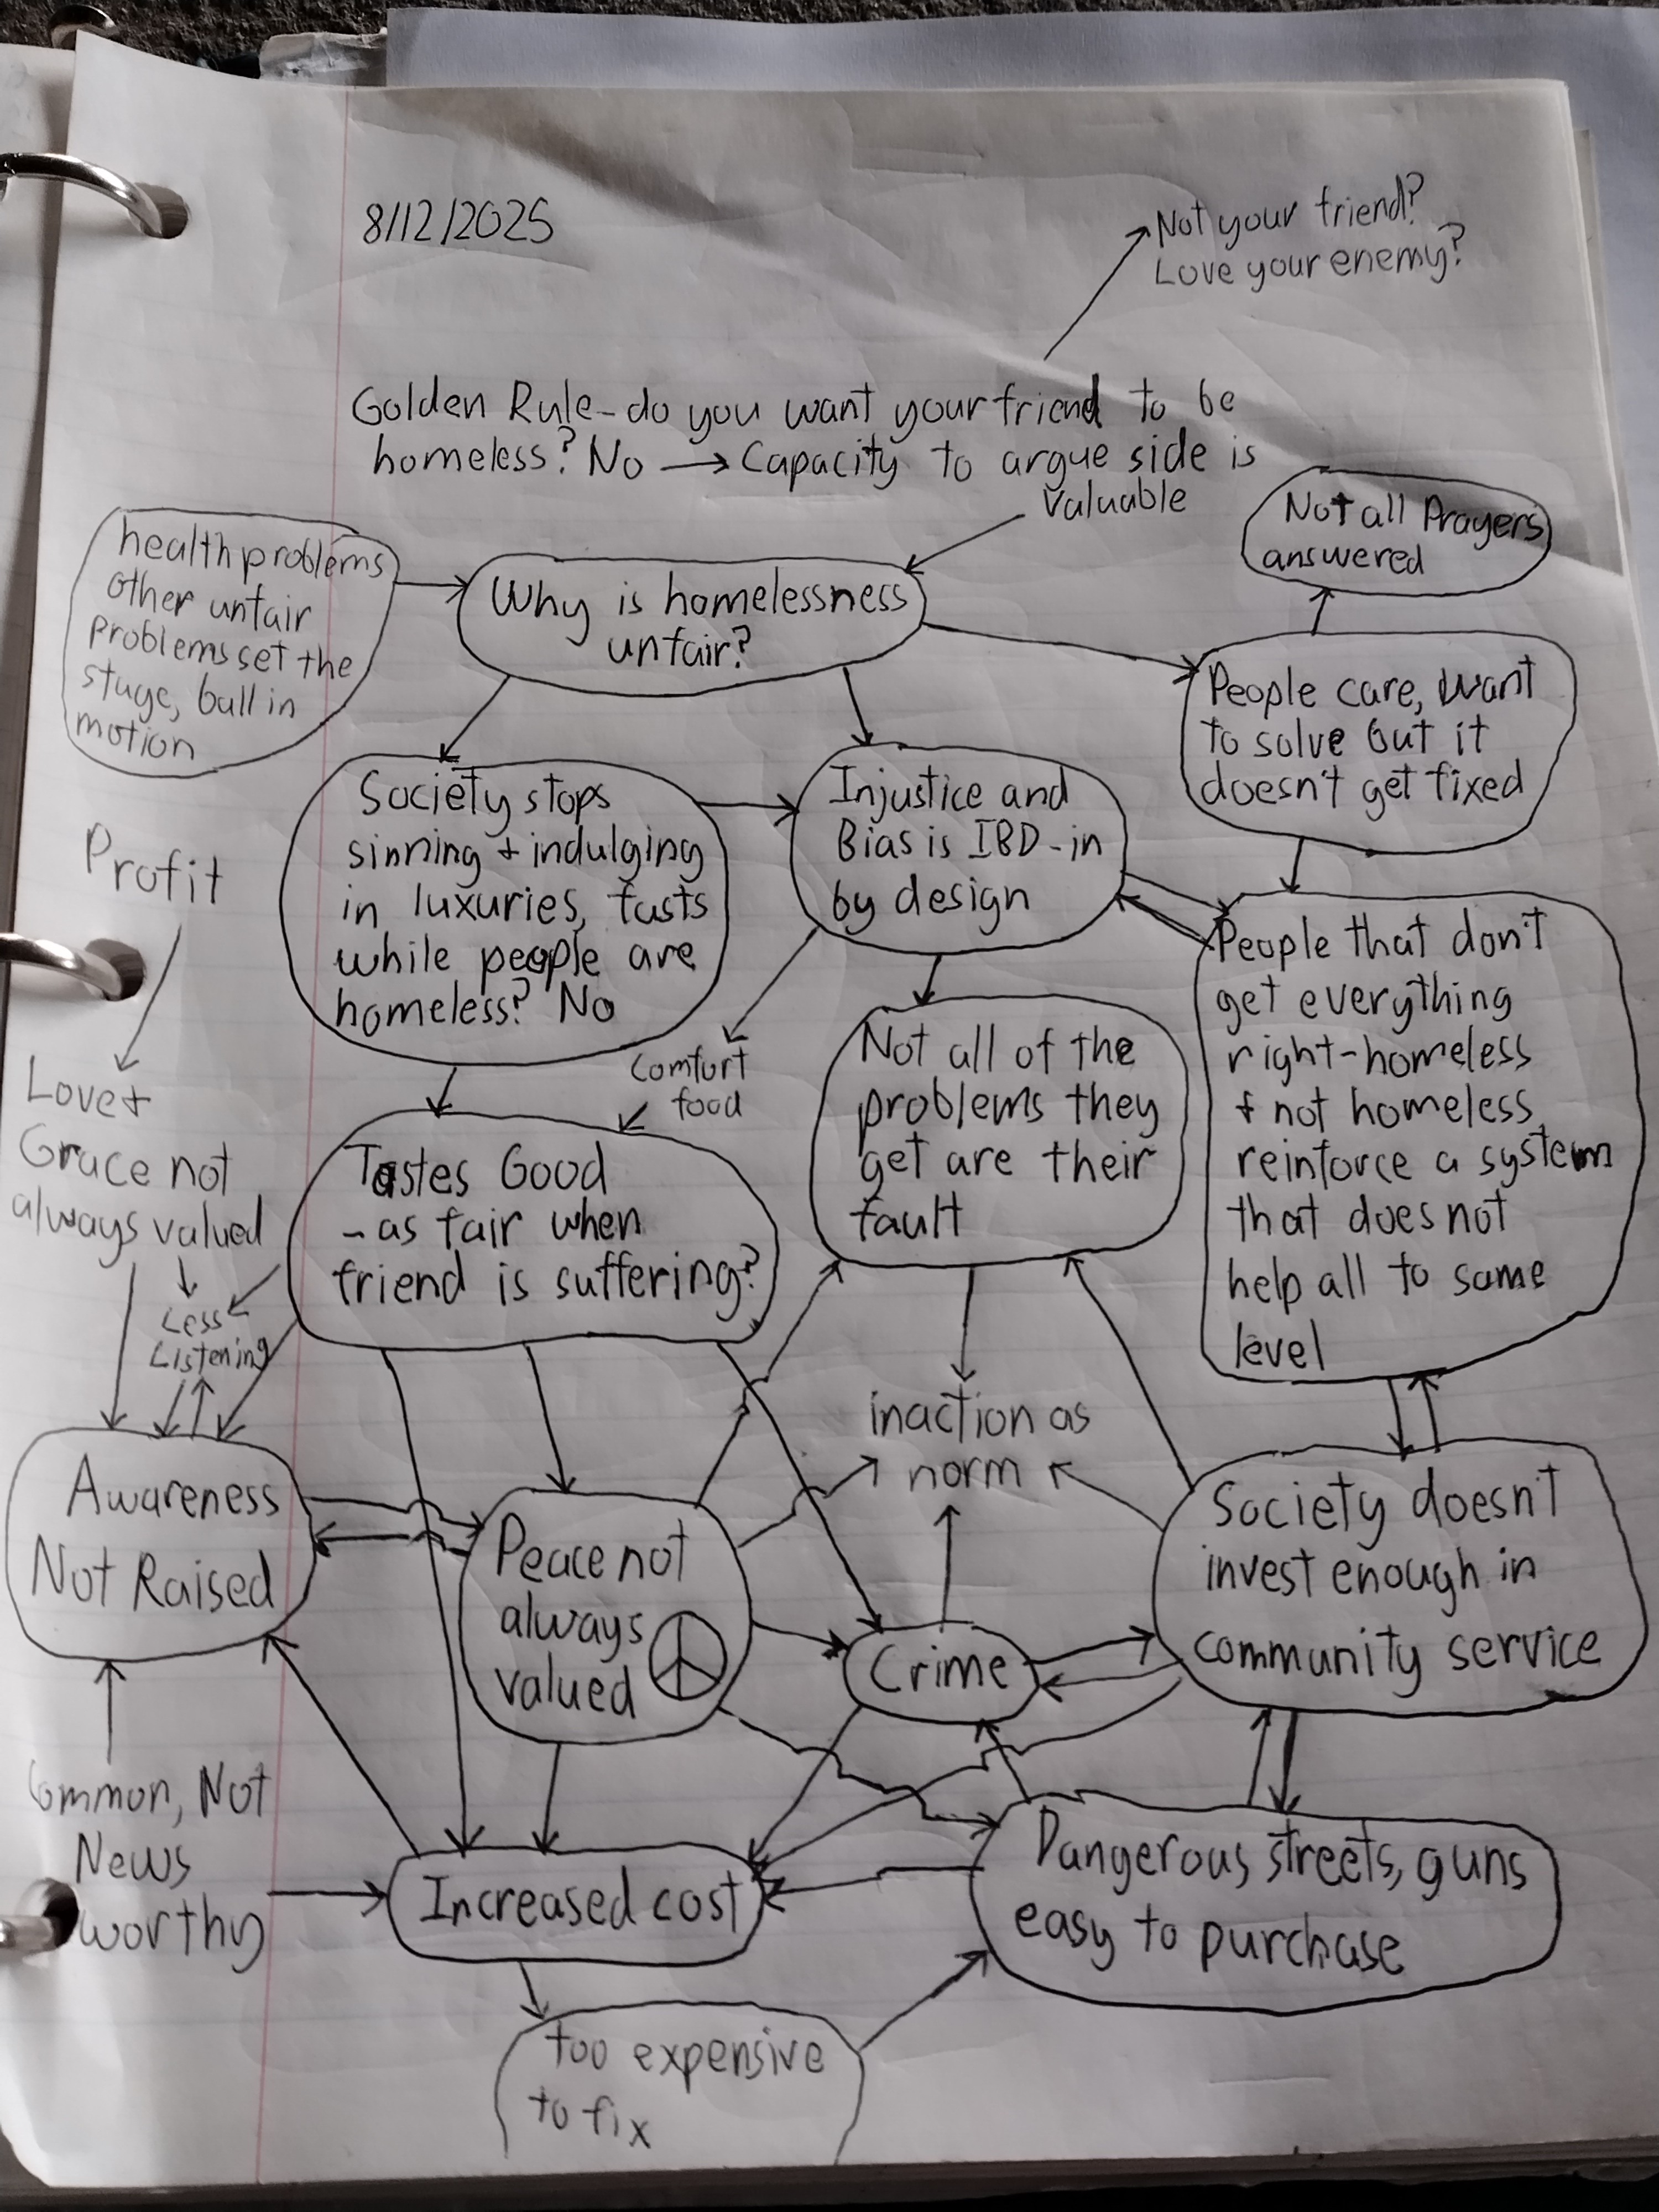 8/12/2025
Not your friend?
Love your enemy?
Golden Rule - do you want your friend to be
homeless? No → Capacity to argue side is
valuable
Not all Prayers
answered
health problems
other unfair
problems set the
stage, ball in
motion
Why is homelessness
unfair?
People care, want
to solve but it
doesn't get fixed
Society stops
sinning + indulging
in luxuries, fasts
while people are
homeless? No
Injustice and
Bias is IBD - in
by design
Profit
People that don't
get everything
right - homeless
+ not homeless
reinforce a system
that does not
help all to same
level
Not all of the
problems they
get are their
fault
Comfort
food
Love +
Grace not
always valued
Tastes Good
- as fair when
friend is suffering?
Less
Listening
inaction as
norm
Awareness
Not Raised
Peace not
always
valued
Crime
Society doesn't
invest enough in
community service
Common, Not
News
worthy
Increased cost
Dangerous streets, guns
easy to purchase
too expensive
to fix